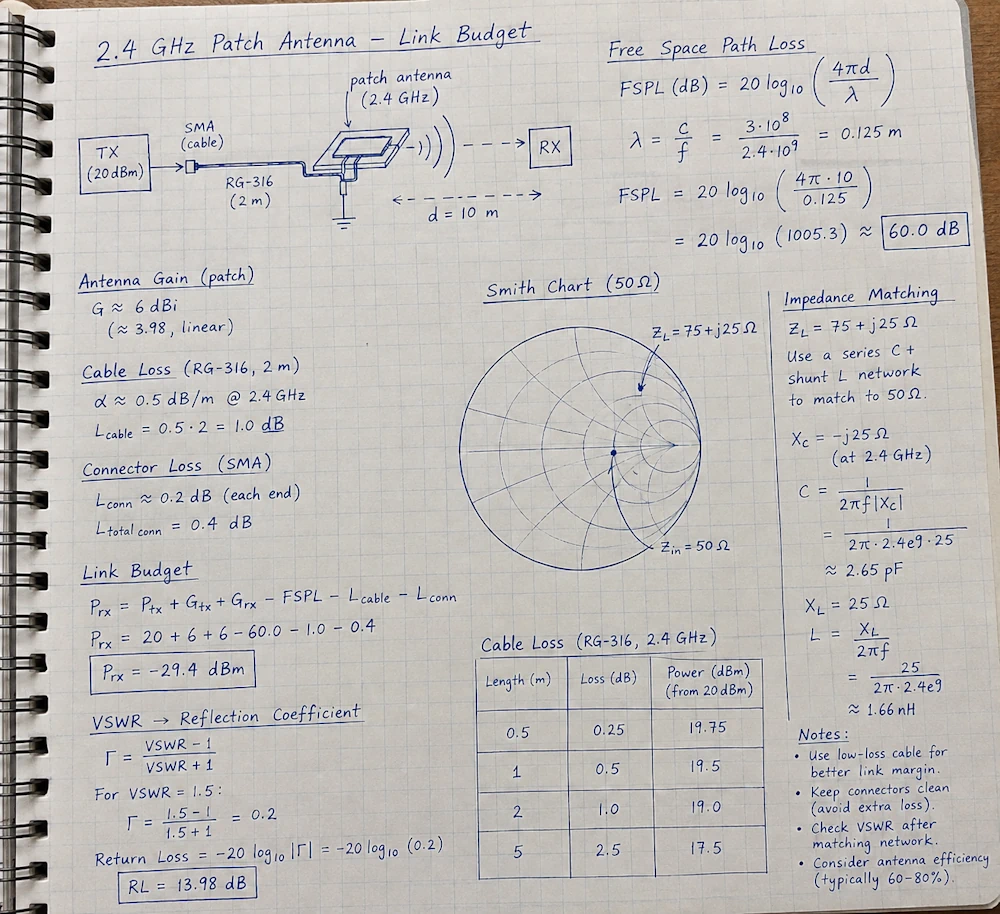 2.4 GHz Patch Antenna – Link Budget
patch antenna
(2.4 GHz)
SMA
(cable)
TX
(20 dBm)
RG-316
(2 m)
RX
d = 10 m
Free Space Path Loss
FSPL (dB) = 20 log₁₀ (4πd / λ)
λ = c/f = 3·10⁸ / 2.4·10⁹ = 0.125 m
FSPL = 20 log₁₀ (4π · 10 / 0.125)
= 20 log₁₀ (1005.3) ≈ 60.0 dB
Antenna Gain (patch)
G ≈ 6 dBi
(≈ 3.98, linear)
Cable Loss (RG-316, 2 m)
α ≈ 0.5 dB/m @ 2.4 GHz
L cable = 0.5 · 2 = 1.0 dB
Connector Loss (SMA)
L conn ≈ 0.2 dB (each end)
L total conn = 0.4 dB
Link Budget
Prx = Ptx + Gtx + Grx – FSPL – Lcable – Lconn
Prx = 20 + 6 + 6 – 60.0 – 1.0 – 0.4
Prx = –29.4 dBm
VSWR → Reflection Coefficient
Γ = VSWR – 1 / VSWR + 1
For VSWR = 1.5:
Γ = 1.5 – 1 / 1.5 + 1 = 0.2
Return Loss = –20 log₁₀ |Γ| = –20 log₁₀ (0.2)
RL = 13.98 dB
Smith Chart (50Ω)
ZL = 75 + j25 Ω
Zin = 50 Ω
Cable Loss (RG-316, 2.4 GHz)
Length (m) Loss (dB) Power (dBm)
(from 20 dBm)
0.5 0.25 19.75
1 0.5 19.5
2 1.0 19.0
5 2.5 17.5
Impedance Matching
ZL = 75 + j25 Ω
Use a series C +
shunt L network
to match to 50Ω.
Xc = –j25 Ω
(at 2.4 GHz)
C = 1 / 2πf|Xc|
= 1 / 2π · 2.4e9 · 25
≈ 2.65 pF
XL = 25 Ω
L = XL / 2πf
= 25 / 2π · 2.4e9
≈ 1.66 nH
Notes:
• Use low-loss cable for
better link margin.
• Keep connectors clean
(avoid extra loss).
• Check VSWR after
matching network.
• Consider antenna efficiency
(typically 60–80%).